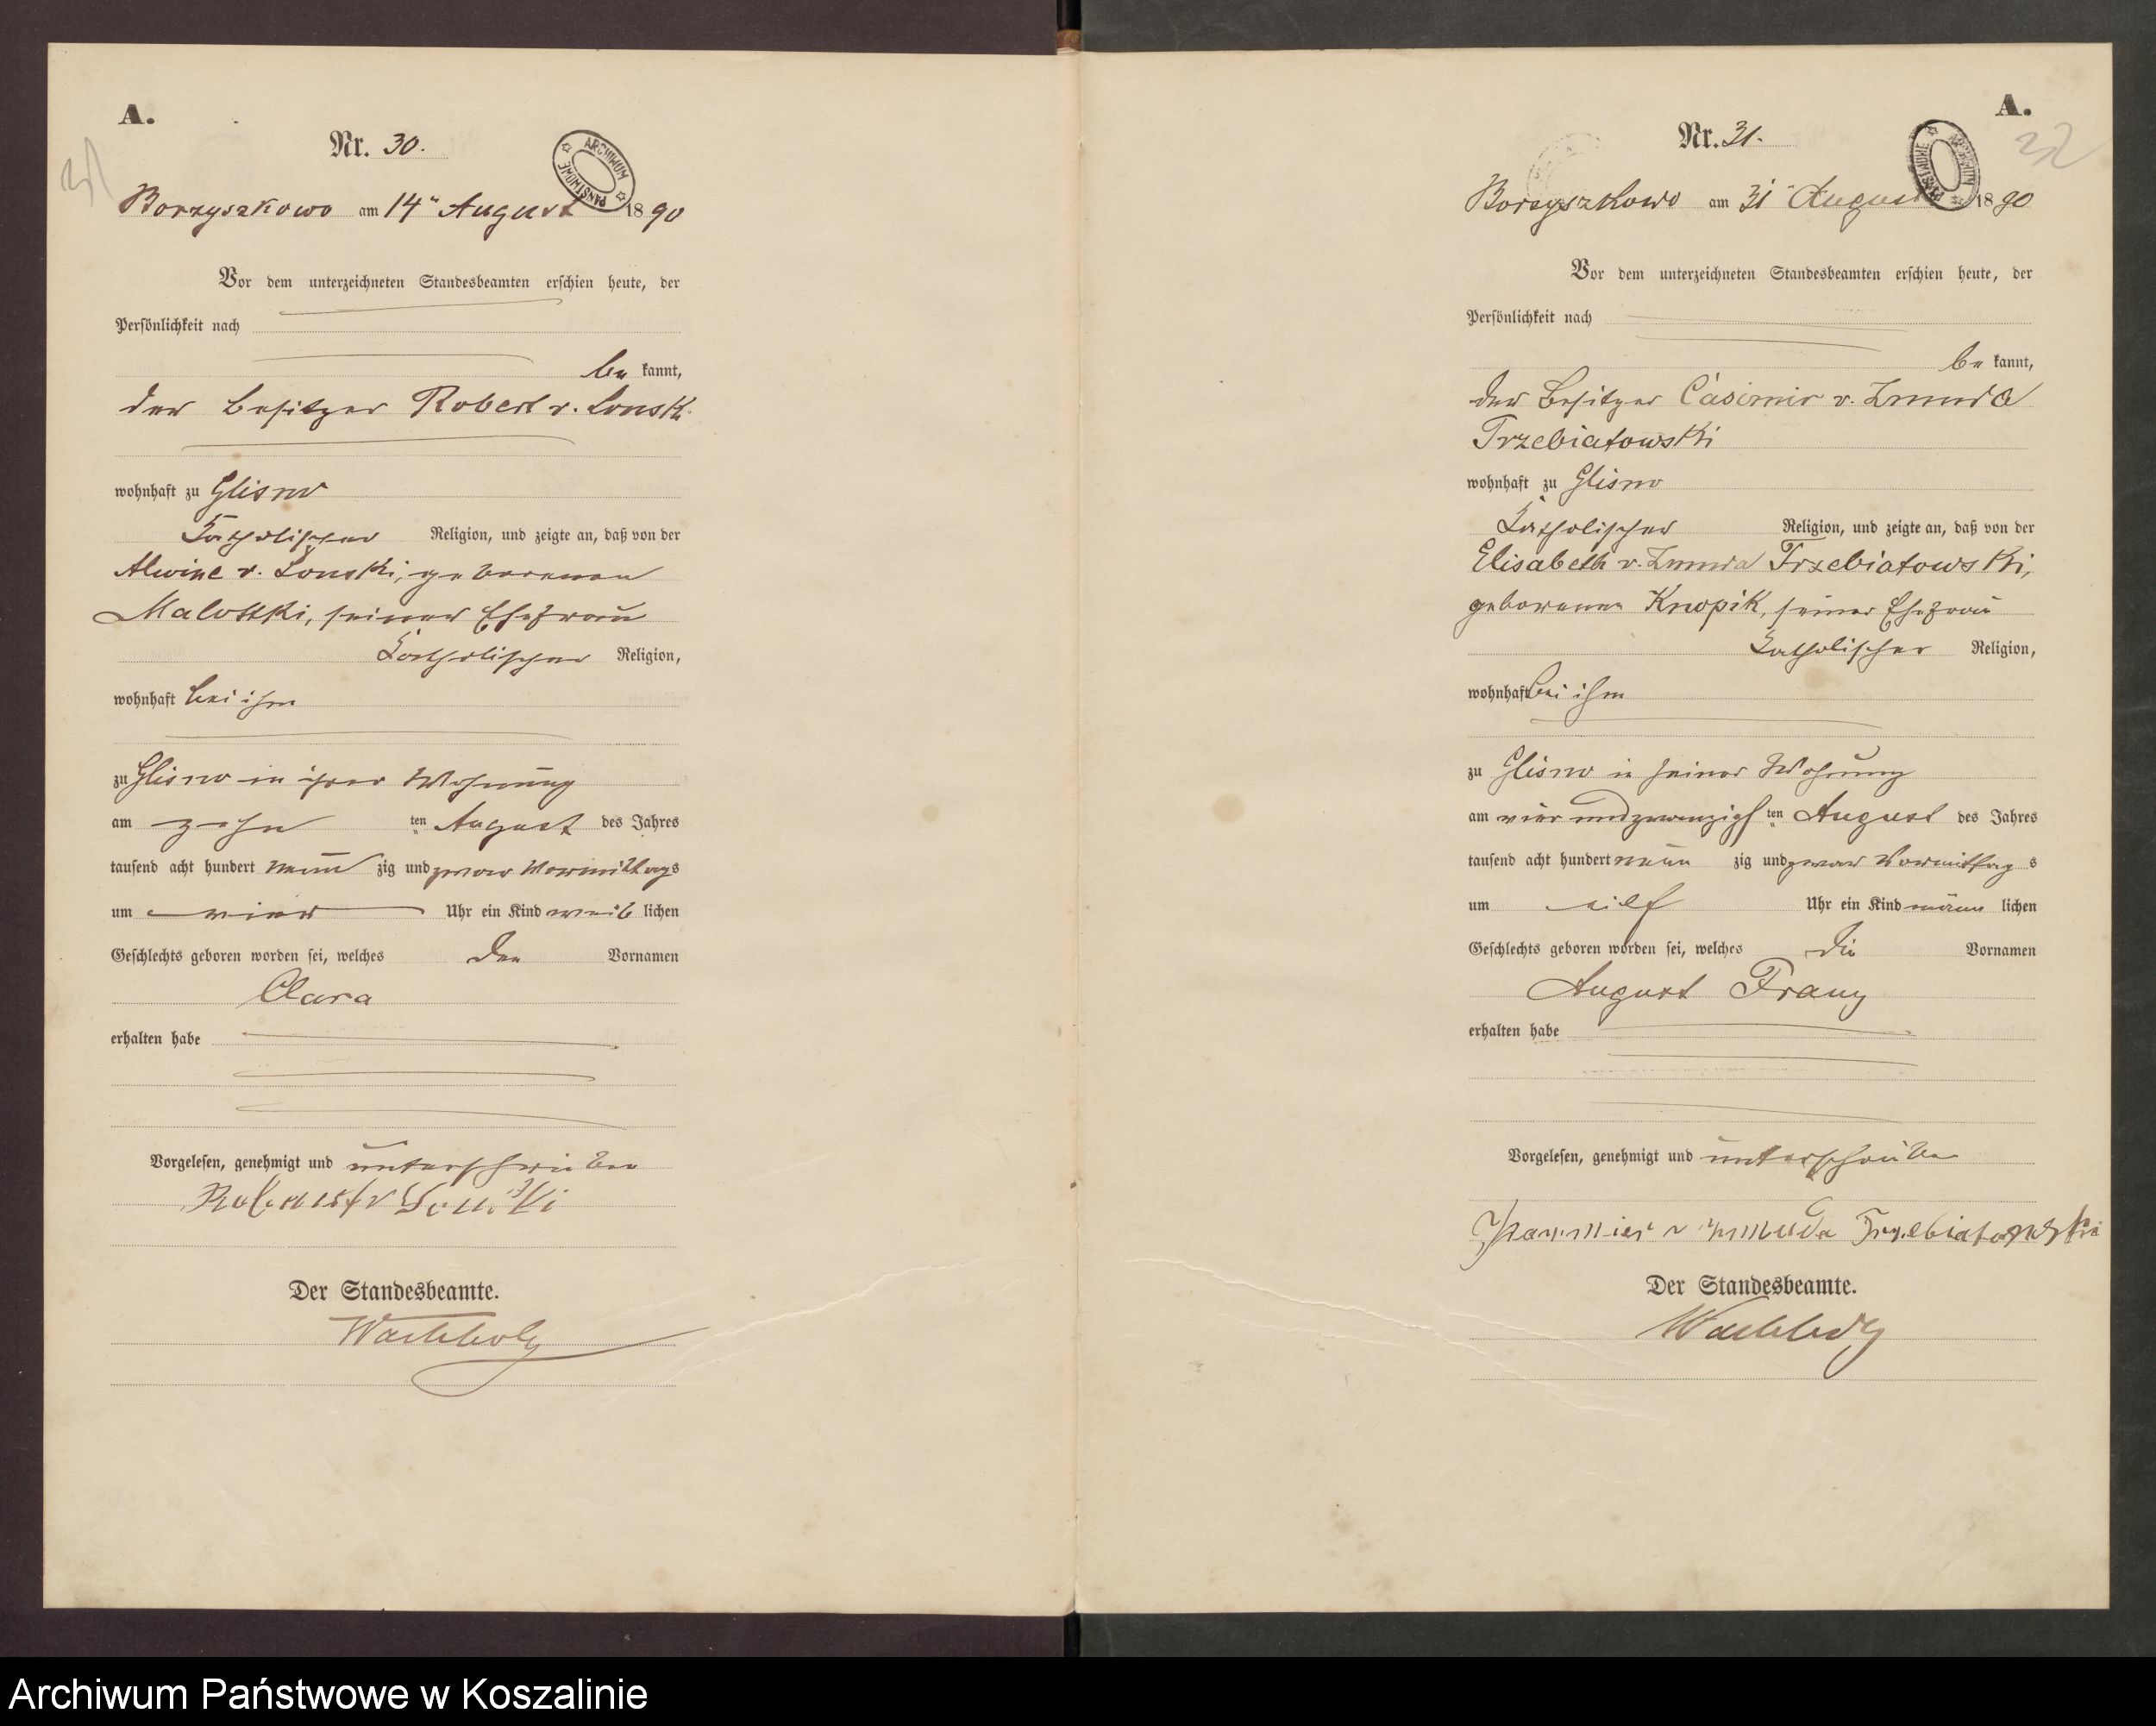 A.
Nr. 30.
ARCHIWUM PAŃSTWOWE
31
Borzyszkowo am 14ᵗ August 1890
Vor dem unterzeichneten Standesbeamten erschien heute, der
Persönlichkeit nach
be kannt,
der Besitzer Robert v. Lonski
wohnhaft zu Glisno
katholischer Religion, und zeigte an, daß von der
Alwine v. Lonski, geborenen
Malottki, seiner Ehefrau
katholischer Religion,
wohnhaft bei ihm
zu Glisno in ihrer Wohnung
am zehn ten August des Jahres
tausend acht hundert neun zig und zwar Vormittags
um vier Uhr ein Kind weib lichen
Geschlechts geboren worden sei, welches den Vornamen
Clara
erhalten habe
Vorgelesen, genehmigt und unterschrieben
Robert v Lonski
Der Standesbeamte.
Wachholz
A.
Nr. 31.
ARCHIWUM PAŃSTWOWE
32
Borzyszkowo am 31 August 1890
Vor dem unterzeichneten Standesbeamten erschien heute, der
Persönlichkeit nach
be kannt,
der Besitzer Casimir v. Zmuda
Trzebiatowski
wohnhaft zu Glisno
katholischer Religion, und zeigte an, daß von der
Elisabeth v. Zmuda Trzebiatowski,
geborenen Knopik, seiner Ehefrau
katholischer Religion,
wohnhaft bei ihm
zu Glisno in seiner Wohnung
am vier und zwanzigs ten August des Jahres
tausend acht hundert neun zig und zwar Vormittag s
um eilf Uhr ein Kind männ lichen
Geschlechts geboren worden sei, welches die Vornamen
August Franz
erhalten habe
Vorgelesen, genehmigt und unterschrieben
v Zmuda Trzebiatowski
Der Standesbeamte.
Wachholz
Archiwum Państwowe w Koszalinie